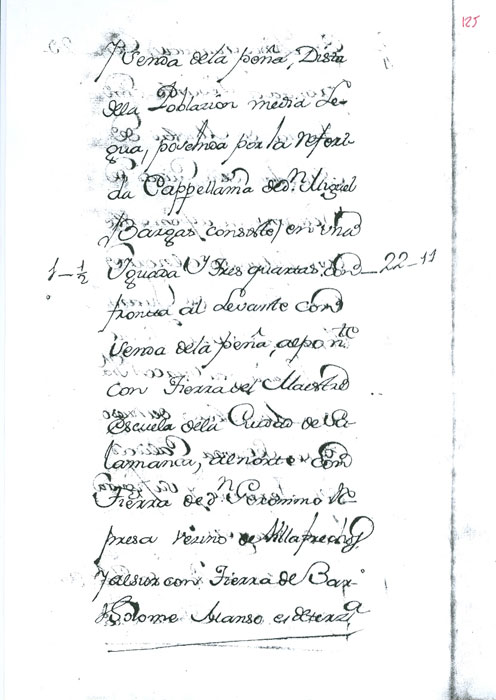 125
Senda dela peña, Dista
dela Poblazion media le-
gua, poseida por la referi-
da Cappellania de Dn. Miguel
Bargas, consiste, en una
1-1/2 Yguada Y tres quartas, 22-11
fronta al Levante con
senda dela peña, al ponte.
con Tierra del Maestro
Escuela dela Ciudad de Sa-
lamanca, al norte con
Tierra de Dn. Geronimo
presa vezino de Villafrechos
y al sur con Tierra de Bar-
tolome Alonso es de terza.